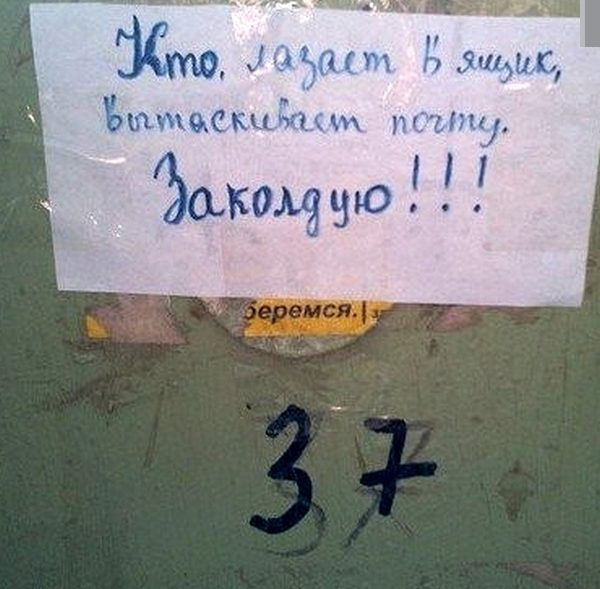 Кто, лазает в ящик,
вытаскивает почту.
Заколдую!!!
беремся.
37